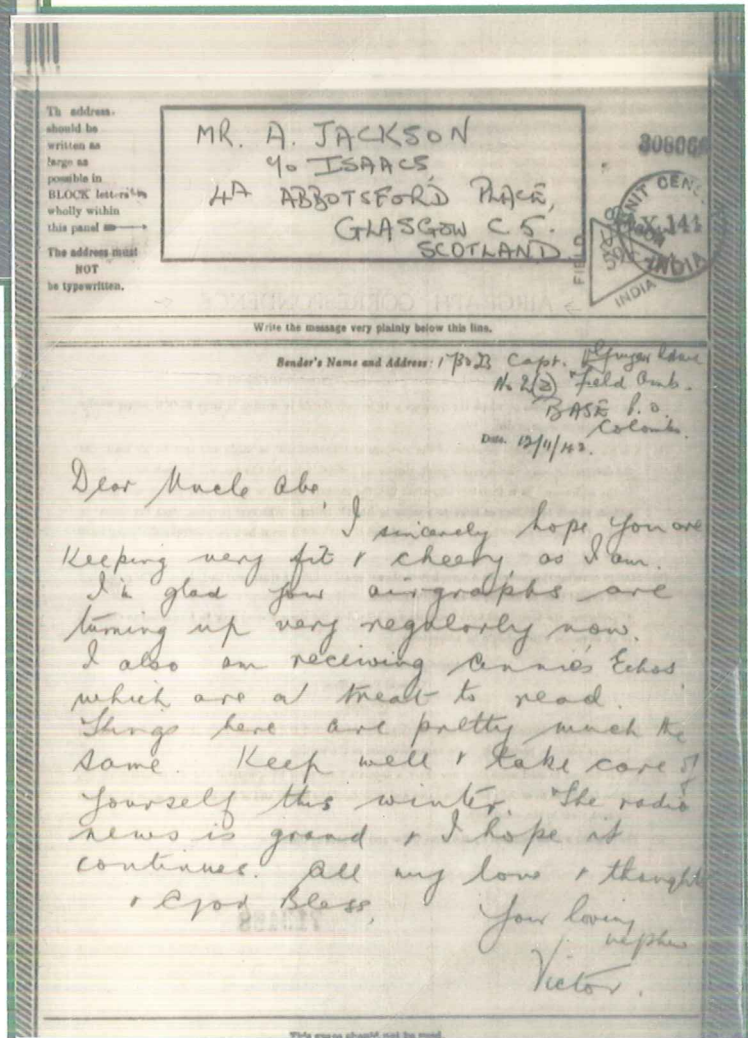 Th address
should be
written as
large as
possible in
BLOCK letters
wholly within
this panel
The address must
NOT
be typewritten.
MR. A. JACKSON
c/o ISAACS,
4A ABBOTSFORD PLACE,
GLASGOW C 5.
SCOTLAND
308060
INDIA
FIELD
INDIA
AIRGRAPH CORRESPONDENCE
Write the message very plainly below this line.
Sender's Name and Address: Capt.
No 2(2) Field Amb.
BASE P.O.
Colombo.
Date. 12/11/42.
Dear Uncle Abe,
I sincerely hope you are
keeping very fit & cheery, as I am.
I'm glad your airgraphs are
turning up very regularly now.
I also am receiving Annie's Echos,
which are a treat to read.
Things here are pretty much the
same. Keep well & take care of
yourself this winter. The radio
news is grand & I hope it
continues. All my love & thoughts
& God Bless,
Your loving
nephew
Victor.
This space should not be used.